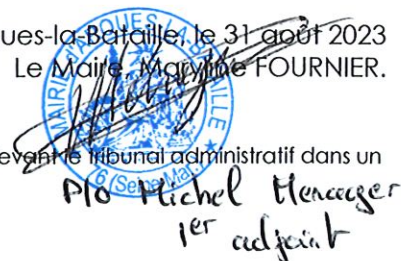 ues-la-Bataille, le 31 août 2023
Le Maire, Maryline FOURNIER.
MAIRIE D'ARQUES-LA-BATAILLE
76 (Seine-Mar.)
evant le tribunal administratif dans un
P/o Michel Menager
1er adjoint